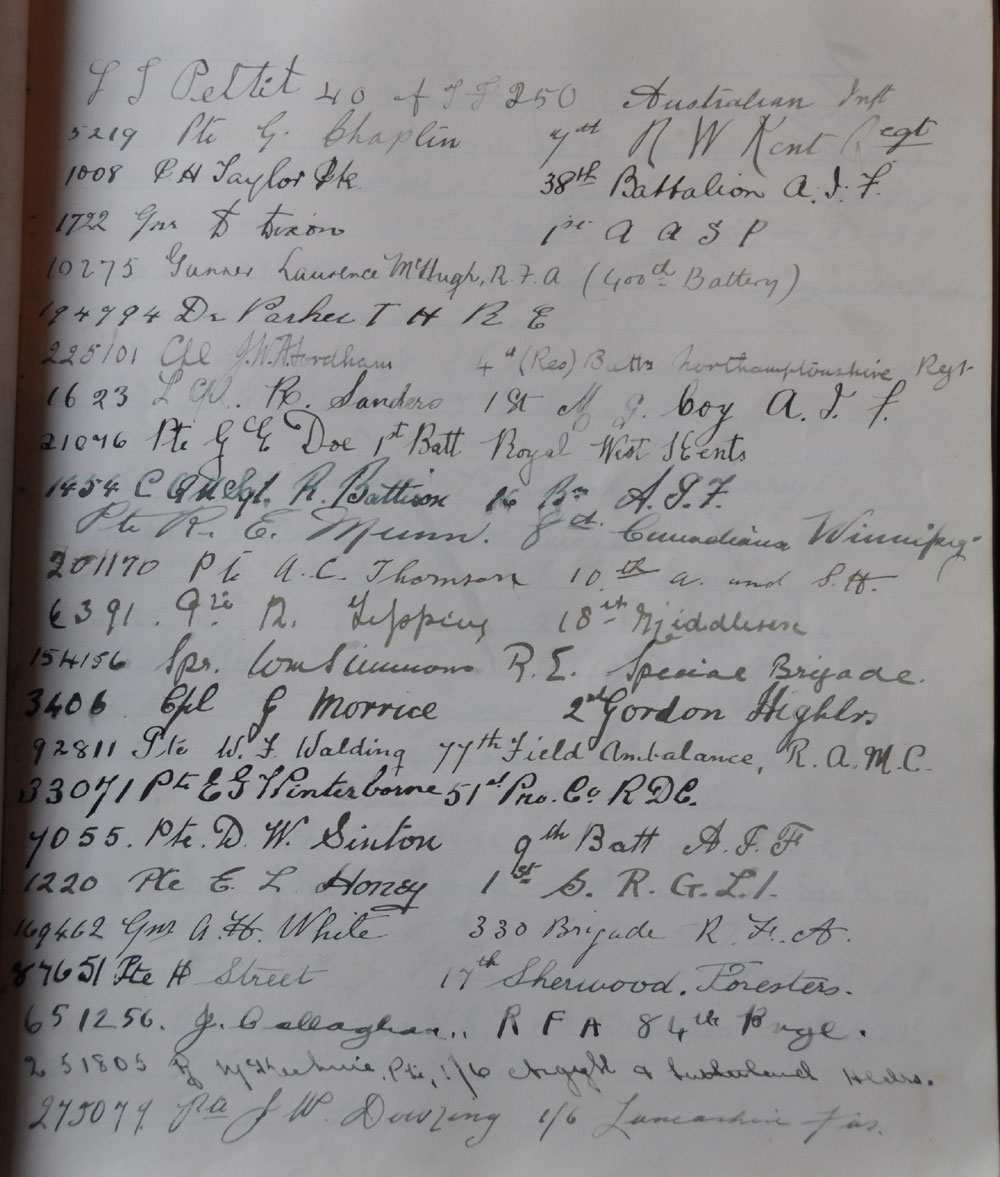 L S Pettit 40 of 250 Australian Inft
5219 Pte G. Chaplin 7th R W Kent Regt
1008 C H Taylor Pte 38th Battalion A. I. F.
1722 Gnr D Dixon 1st A A S P
10275 Gunner Laurence McHugh, R. F. A (400th Battery)
194794 Dr Parker T H R E
225101 Cpl J.W. Hordham 4th (Res) Battn Northamptonshire Regt.
1623 L Cpl. R. Sanders 1st M. G. Coy A. I. F.
21046 Pte G E Doe 1st Batt Royal West Kents
1454 C Q M Sgt. R. Battison 16 Bn A.I.F.
Pte R. E. Munn. 8th Canadians Winnipeg
201170 Pte A.C. Thomson 10th A. and S.H.
6391. R. Tipping 18th Middlesex
154156 Spr. Wm Simmons R. E. Special Brigade.
3406 Cpl G Morrice 2nd Gordon Highlrs
92811 Pte W. F. Walding 77th Field Ambulance, R. A. M. C.
33071 Pte E G Winterborne 51st Pro. Co R D C.
7055. Pte. D. W. Sinton 9th Batt A. I. F
1220 Pte E. L Honey 1st S. R. G. L. I.
169462 Gnr A. H. White 330 Brigade R. F. A.
87651 Pte H Street 17th Sherwood. Foresters.
651256. J. Callaghan., R F A 84th Brige.
251805 Pte, 1/6 Argyll & Sutherland Hldrs.
275079 J W. Dowzing 1/6 Lancashire Fus.